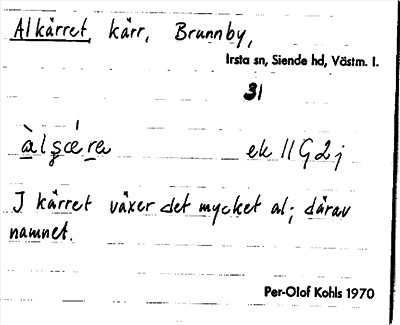 Alkärret, kärr, Brunnby,
Irsta sn, Siende hd, Västm. l.
31
àlʂǽra ek 11G2j
I kärret växer det mycket al; därav
namnet.
Per-Olof Kohls 1970